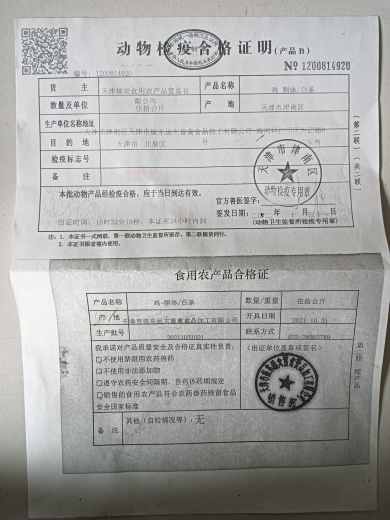 动物检疫合格证明(产品B)
编号:1200814920
№ 1200814920
货 主 天津 食用农产品贸易有限公司 产品名称 鸡-胴体/白条
数量及单位 伍拾公斤 产 地 天津市津南区
生产单位名称地址 天津市津南区天津市振东远大畜禽食品加工有限公司
目的地 天津市 北辰区
检疫标志号
备 注
本批动物产品经检疫合格,应于当日到达有效。
官方兽医签字:
签发日期:
出证时间:15时32分18秒,本证在24小时内到
(动物卫生监督所检疫专用章)
天津市津南区
动物检疫专用章
注:1. 本证书一式两联,第一联动物卫生监督所留存,第二联随货同行。
2. 本证书限省境内使用。
(第二联)(共二联)
食用农产品合格证
产品名称 鸡-胴体/白条 数量/重量 伍拾公斤
产 地 天津市振东远大畜禽食品加工有限公司 开具日期 2021.10.31
生产批号 20211031001 联系方式
我承诺对产品质量安全及合格证真实性负责:
(出证单位盖章或签名)
□不使用禁限用农药兽药
□不使用非法添加物
□遵守农药安全间隔期、兽药休药期规定
□销售的食用农产品符合农药兽药残留食品安全国家标准
销售部
备 注 其他(自检情况等):无